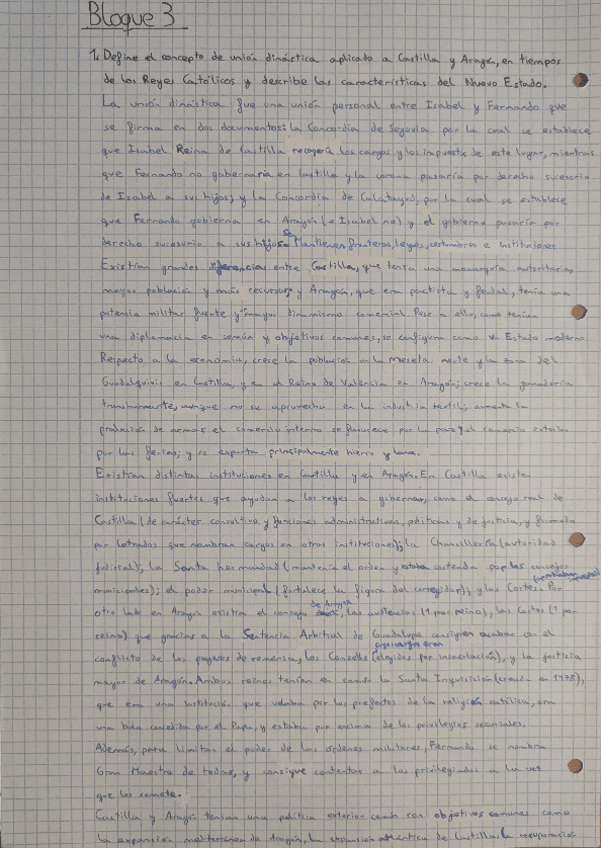 Bloque 3
1. Define el concepto de unión dinástica aplicado a Castilla y Aragón, en tiempos
de los Reyes Católicos y describe las características del Nuevo Estado.
La unión dinástica fue una unión personal entre Isabel y Fernando que
se firma en dos documentos: la Concordia de Segovia por la cual se establece
que Isabel Reina de Castilla recogería los cargos y los impuestos de este lugar, mientras
que Fernando no gobernaría en Castilla y la corona pasaría por derecho sucesorio
de Isabel a sus hijos; y la Concordia de Calatayud, por la cual se establece
que Fernando gobierna en Aragón (e Isabel no) y el gobierno pasaría por
derecho sucesorio a sus hijos. Se Mantienen fronteras, leyes, costumbres e instituciones
Existían grandes diferencias entre Castilla, que tenía una monarquía autoritaria
mayor población y más recursos y Aragón, que era pactista y feudal, tenía una
potencia militar fuente y mayor dinamismo comercial. Pese a ello, como tenían
una diplomacia en común y objetivos comunes, se configura como un Estado moderno.
Respecto a la economía, crece la población en la meseta norte y la zona del
Guadalquivir en Castilla, y en el Reino de Valencia en Aragón; crece la ganadería
transhumante, aunque no se aprovecha en la industria textil; aumenta la
producción de armas el comercio interno se favorece por la paz y el comercio exterior
por las ferias; y se exporta principalmente hierro y lana.
Existían distintas instituciones en Castilla y en Aragón. En Castilla existen
instituciones fuertes que ayudan a los reyes a gobernar, como el consejo real de
Castilla (de carácter consultivo y funciones administrativas, políticas y de justicia, y formado
por letrados que nombran cargos en otras instituciones); la Chancillería (autoridad
judicial); la Santa hermandad (mantenía el orden y estaba costeada por los consejos
municipales); el poder municipal (fortalece la figura del corregidor); y las Cortes. Por
otro lado en Aragón existía el consejo de Aragón, las audiencias (1 por reino), las Cortes (1 por
reino) que gracias a la Sentencia Arbitral de Guadalupe consiguen acabar con el
conflicto de los payeses de remensa, los Consells (cuyos cargos eran elegidos por insaculación), y la justicia
mayor de Aragón. Ambos reinos tenían en común la Santa Inquisición (creada en 1478),
que era una institución que velaba por los preceptos de la religión católica, era
una bula concedida por el Papa, y estaba por encima de los privilegios
Además, para limitar el poder de las órdenes militares, Fernando se nombra
Gran Maestro de todas, y consigue contentar a los privilegiados a la vez
que los somete.
Castilla y Aragón tenían una política exterior común con objetivos comunes como
la expansión mediterránea de Aragón, la expansión atlántica de Castilla, la recuperación